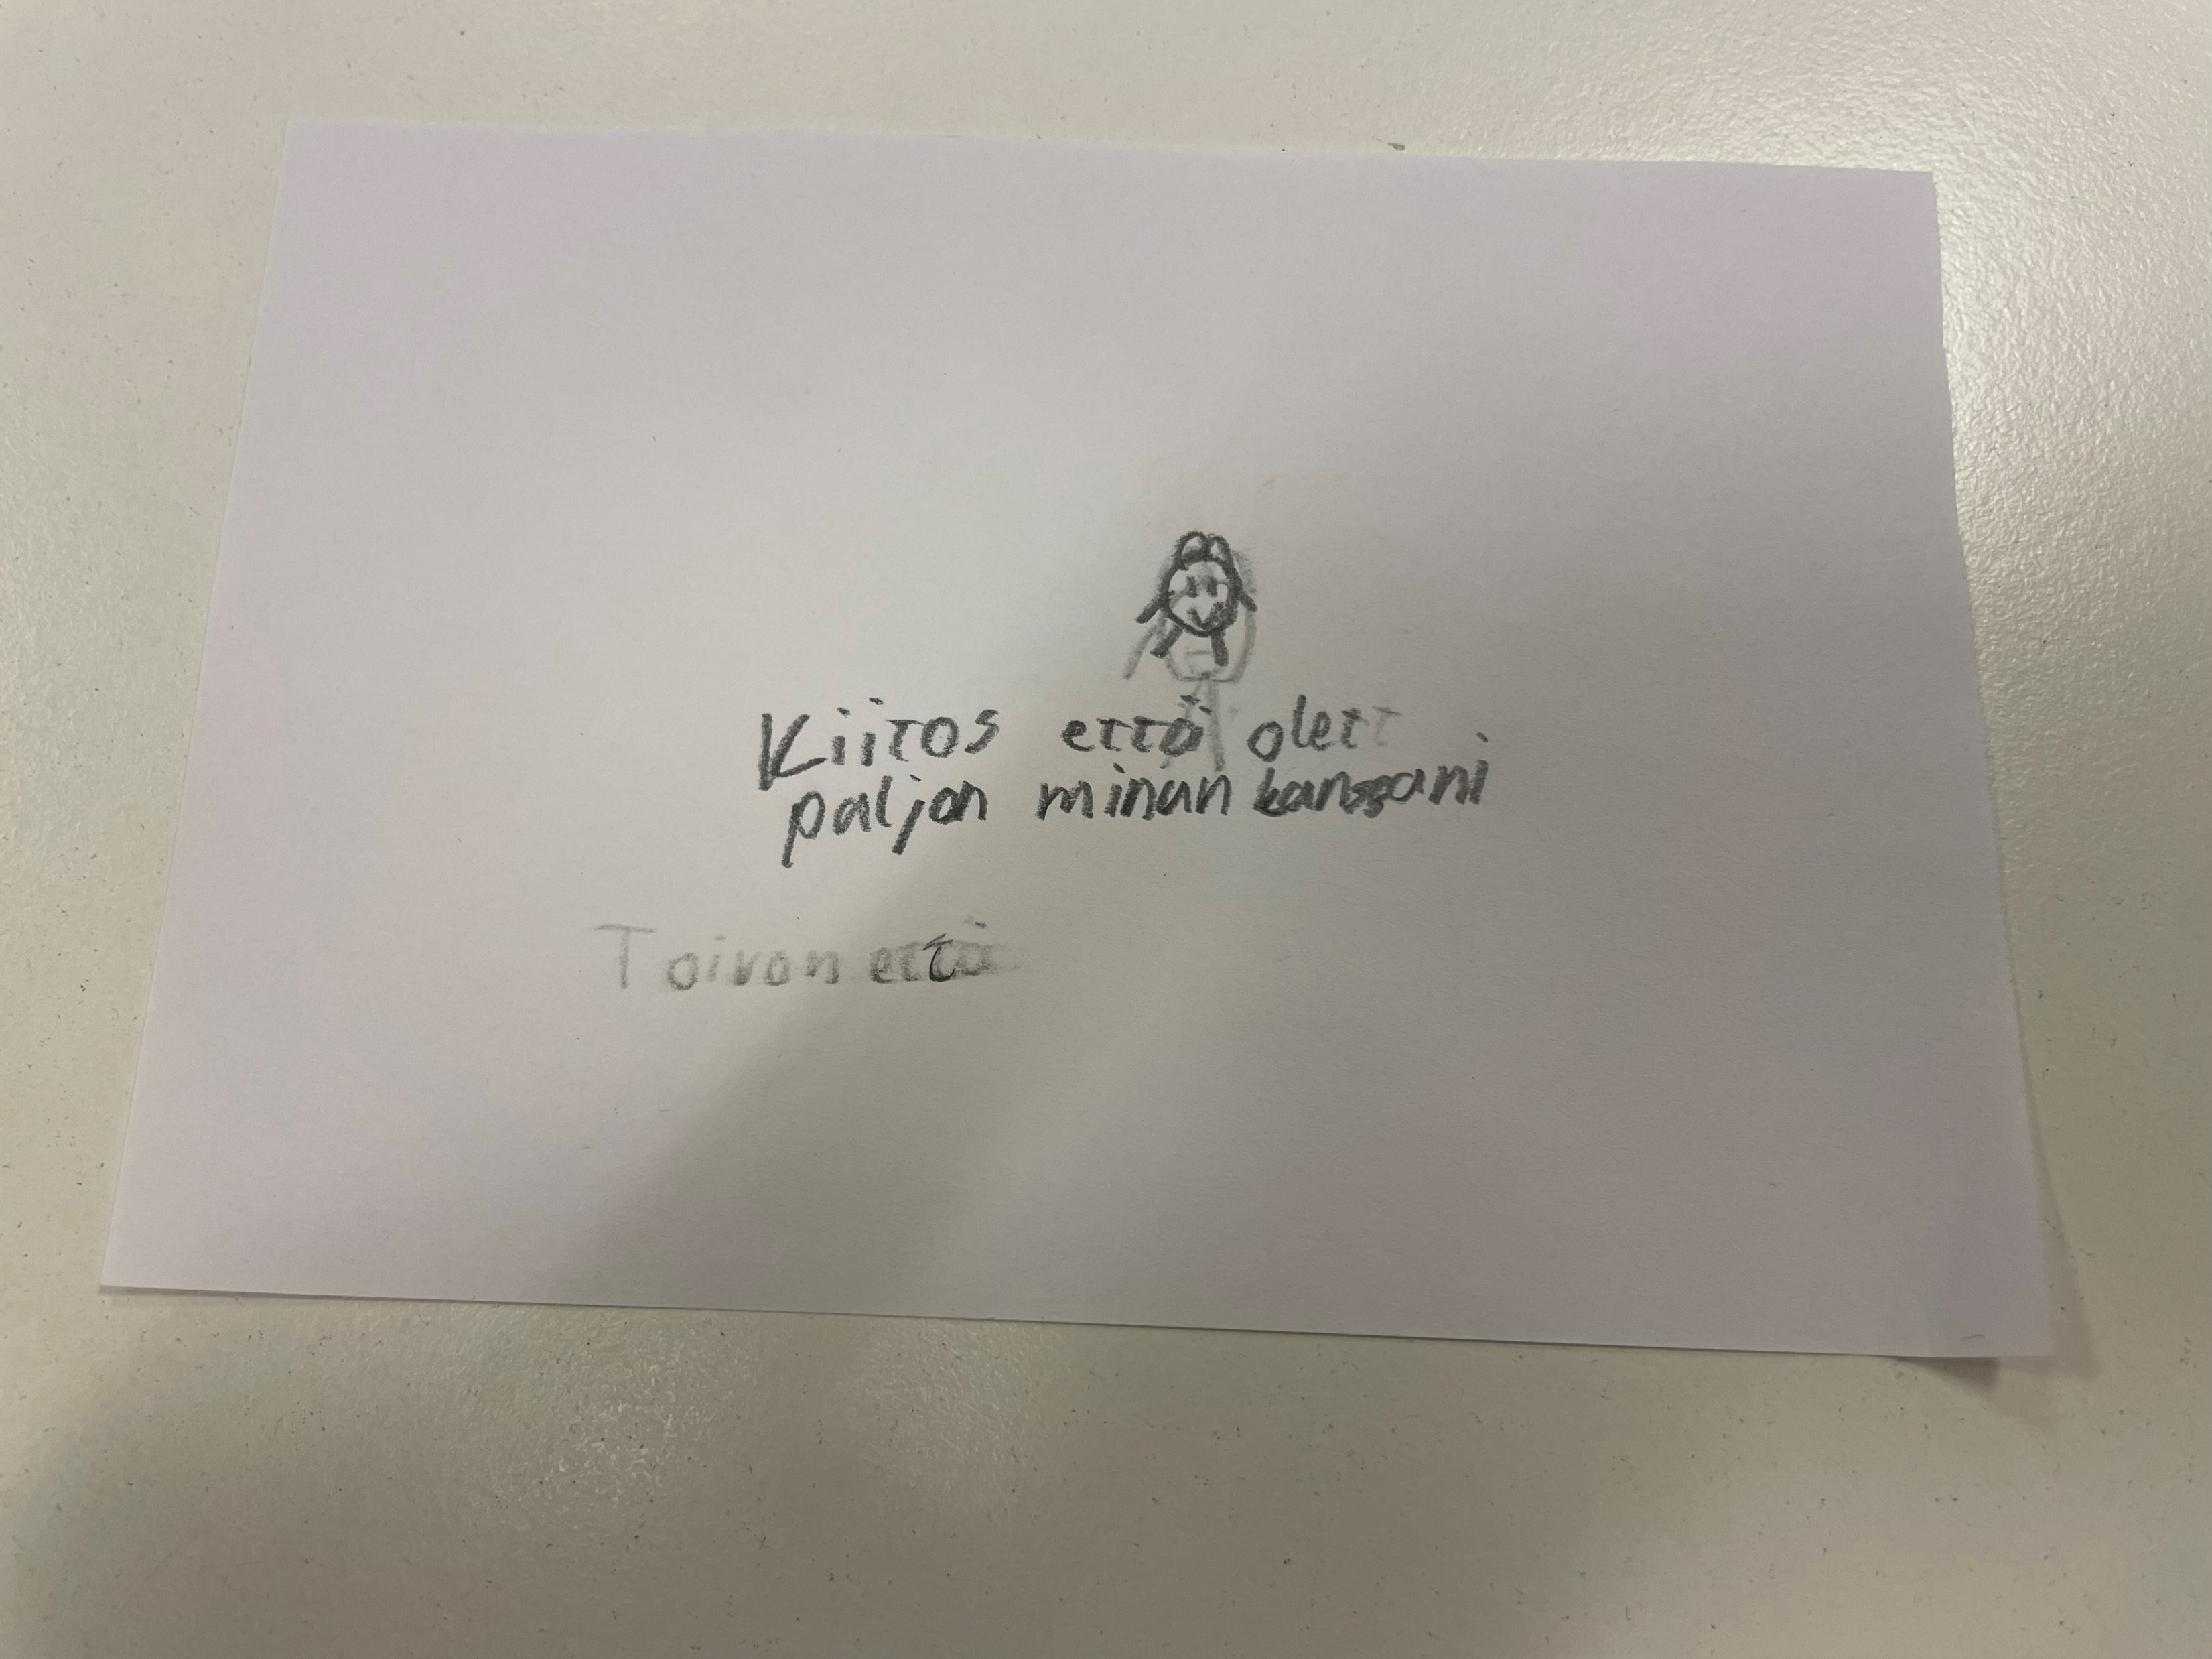 Kiitos että olet
paljon minun kanssani
Toivon että